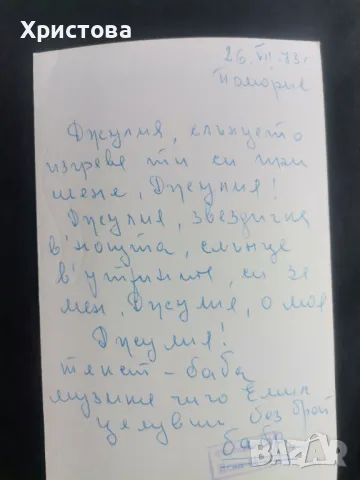 Христова
26. VII. 73 г
Поморие
Джулия, слънцето
изгрева ти си при
мене, Джулия!
Джулия, звездичка
в нощта, слънце
в утрините, си за
мен, Джулия, о моя
Джулия!
текст - баба
музика чичо Емил
целувки без брой
баба
bazar.bg